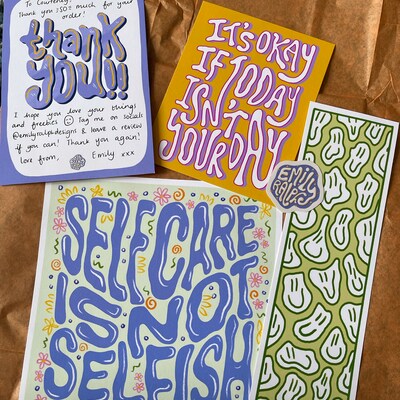 To Courteney!
Thank you SO!! much for your
order!
thank
you!!
I hope you love your things
and freebies ☺ Tag me on socials
@emilyscalpdesigns & leave a review
if you can! Thank you again!
love from, Emily xxx
IT'S OKAY
IF TODAY
ISN'T
YOUR DAY
EMILY
SELFCARE
IS NOT
SELFISH